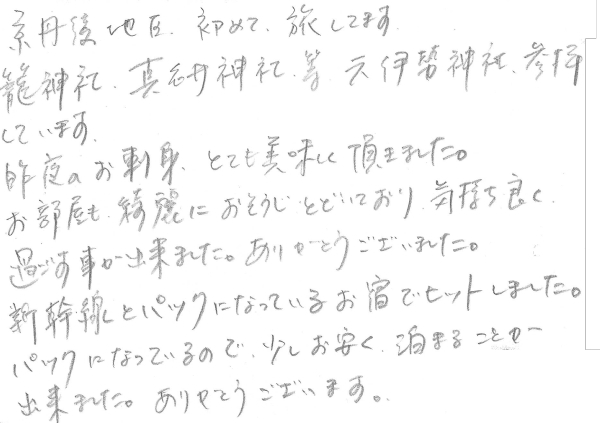 京丹後地区、初めて、旅してます。
籠神社、真名井神社、等、元伊勢神社、参拝
しています。
昨夜のお刺身、とても美味しく頂きました。
お部屋も、綺麗におそうじとどいており、気持ち良く、
過ごす事が出来ました。ありがとうございました。
新幹線とパックになっているお宿でヒットしました。
パックになっているので、少しお安く、泊まることが
出来ました。ありがとうございます。